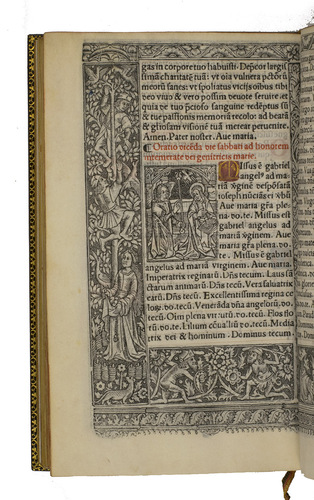 gas in corpore tuo habuisti. Deprecor largis
simā charitatē tuā: vt oīa vulnera pctōrū
meorū sanes: vt spoliatus vicijs oibus tibi
deo viuo & vero possim deuote seruire. et
quia de tuo p̄cioso sanguine redēptus sū
& tue passionis memoria recolo: ad beatā
& gliosam visionē tuā merear peruenire.
Amen. Pater noster. Aue maria.
Oratio dicēda die sabbati ad honorem
intemerate dei genitricis marie.
Missus ē gabriel
angel⁹ ad ma
riā v̄ginē despōsatā
ioseph nūciās ei v̄bū
Aue maria gr̄a ple
na. do. te. Missus est
gabriel angelus ad
mariā v̄ginem. Aue
maria gr̄a plena do.
te. Missus ē gabriel
angelus ad mariā virginem. Aue maria.
Imperatrix reginarū. Dn̄s tecum. Laus san
ctarum animarū. Dn̄s tecū. Vera salutatrix
earū. Dn̄s tecū. Excellentissima regina ce
lo4. do. tecū. Venerāda dn̄a angelorū. do.
te. Oim plena virtutū. do. tecū. Flos flo4
rū. do. te. Lilium cōualliū do. tecū. Media
trix dei & hominum. Dominus tecum.